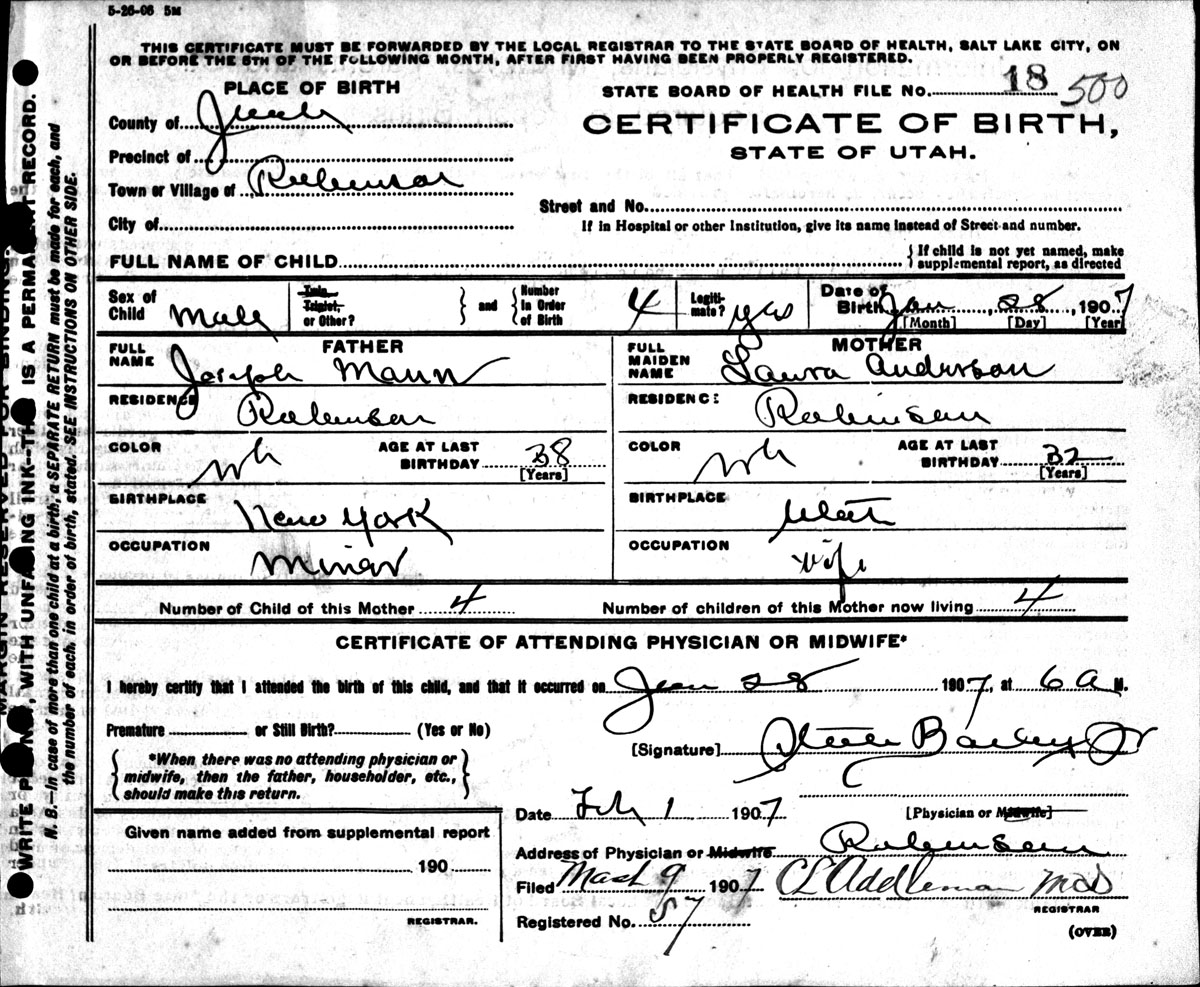 5-26-06 5M
THIS CERTIFICATE MUST BE FORWARDED BY THE LOCAL REGISTRAR TO THE STATE BOARD OF HEALTH, SALT LAKE CITY, ON
OR BEFORE THE 5TH OF THE FOLLOWING MONTH, AFTER FIRST HAVING BEEN PROPERLY REGISTERED.
PLACE OF BIRTH
STATE BOARD OF HEALTH FILE NO. 18 500
County of Juab
CERTIFICATE OF BIRTH,
Precinct of
STATE OF UTAH.
Town or Village of Robinson
Street and No.
City of
If in Hospital or other Institution, give its name instead of Street and number.
FULL NAME OF CHILD
{ If child is not yet named, make
supplemental report, as directed
Sex of Child Male
Twin, Triplet, or Other? } and { Number in Order of Birth 4
Legitimate? yes
Date of Birth Jan 28, 1907
[Month] [Day] [Year]
FATHER
FULL NAME Joseph Mann
RESIDENCE Robinson
COLOR Wh AGE AT LAST BIRTHDAY 38
[Years]
BIRTHPLACE New York
OCCUPATION Miner
MOTHER
FULL MAIDEN NAME Laura Anderson
RESIDENCE Robinson
COLOR Wh AGE AT LAST BIRTHDAY 32
[Years]
BIRTHPLACE Utah
OCCUPATION Wife
Number of Child of this Mother 4 Number of children of this Mother now living 4
CERTIFICATE OF ATTENDING PHYSICIAN OR MIDWIFE*
I hereby certify that I attended the birth of this child, and that it occurred on Jan 28 1907, at 6 A M.
Premature or Still Birth? (Yes or No)
[Signature] Steele Bailey Jr
*When there was no attending physician or
midwife, then the father, householder, etc.,
should make this return.
Date Feb 1 1907 [Physician or Midwife]
Given name added from supplemental report
190
REGISTRAR.
Address of Physician or Midwife Robinson
Filed Mach 9 1907 CE Addleman MD
REGISTRAR
Registered No. 57
(OVER)
MARGIN RESERVED FOR BINDING.
WRITE PLAINLY, WITH UNFADING INK—THIS IS A PERMANENT RECORD.
N. B.—In case of more than one child at a birth, a SEPARATE RETURN must be made for each, and
the number of each, in order of birth, stated. SEE INSTRUCTIONS ON OTHER SIDE.